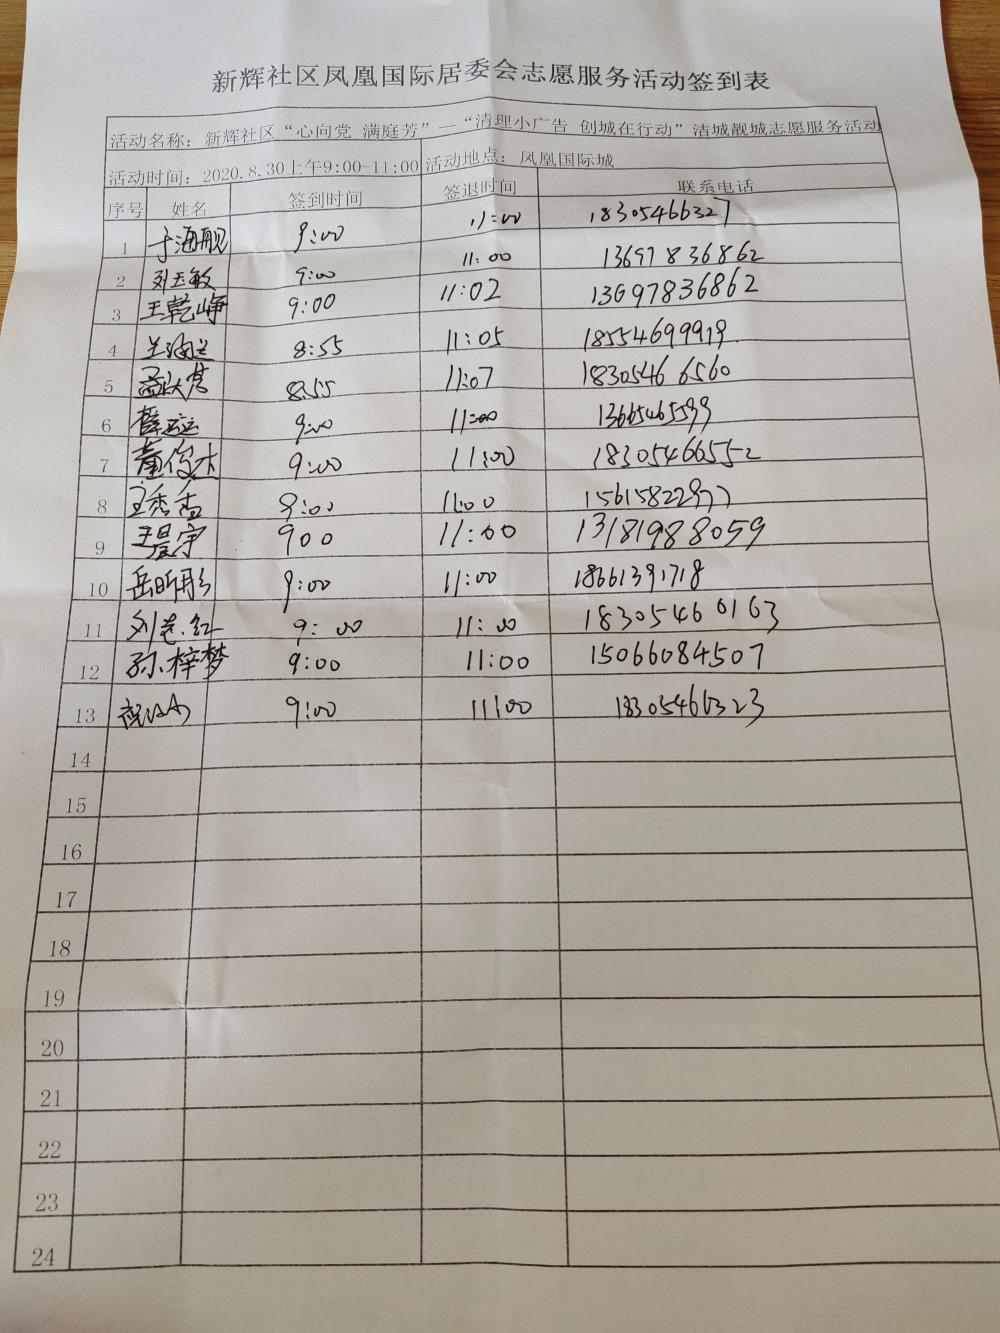 新辉社区凤凰国际居委会志愿服务活动签到表
活动名称：新辉社区“心向党 满庭芳”—“清理小广告 创城在行动”洁城靓城志愿服务活动
活动时间：2020.8.30上午9:00-11:00 活动地点：凤凰国际城
序号 姓名 签到时间 签退时间 联系电话
1 于海舰 9:00 11:00 18305466327
2 刘玉敏 9:00 11:00 13697836862
3 王乾峥 9:00 11:02 13697836862
4 8:55 11:05 18554699919
5 8:55 11:07 18305466560
6 薛 9:00 11:00 13665465599
7 董俊杰 9:00 11:00 18305466552
8 王秀香 9:00 11:00 15615822977
9 王晨宇 900 11:00 13181988059
10 岳昕彤 9:00 11:00 18661391718
11 刘艺红 9:00 11:00 18305460163
12 孙梓梦 9:00 11:00 15066084507
13 9:00 11:00 18305466323
14
15
16
17
18
19
20
21
22
23
24